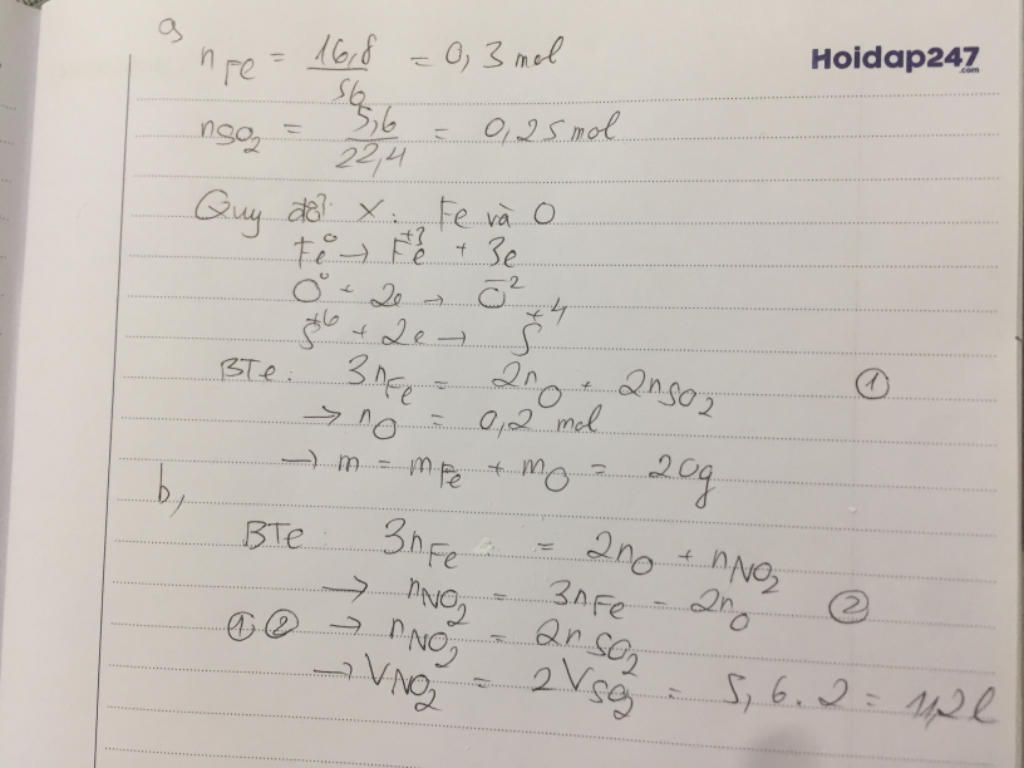 a,
n Fe = 16,8 / 56 = 0,3 mol
Hoidap247
.com
nSO2 = 5,6 / 22,4 = 0,25 mol
Quy đổi X: Fe và O
Fe⁰ → Fe⁺³ + 3e
O⁰ + 2e → O⁻²
S⁺⁶ + 2e → S⁺⁴
BTe: 3nFe = 2nO + 2nSO2 ①
→ nO = 0,2 mol
→ m = mFe + mO = 20g
b,
BTe: 3nFe = 2nO + nNO2
→ nNO2 = 3nFe - 2nO ②
①,② → nNO2 = 2nSO2
→ VNO2 = 2VSO2 = 5,6.2 = 11,2l